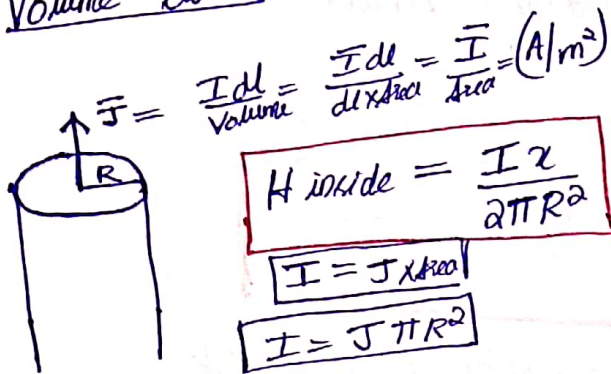 Volume
J̅ = Idl/Volume = I̅dl/dl×Area = I̅/Area = (A/m²)
R
H inside = Ix/2πR²
I = J×Area
I = JπR²